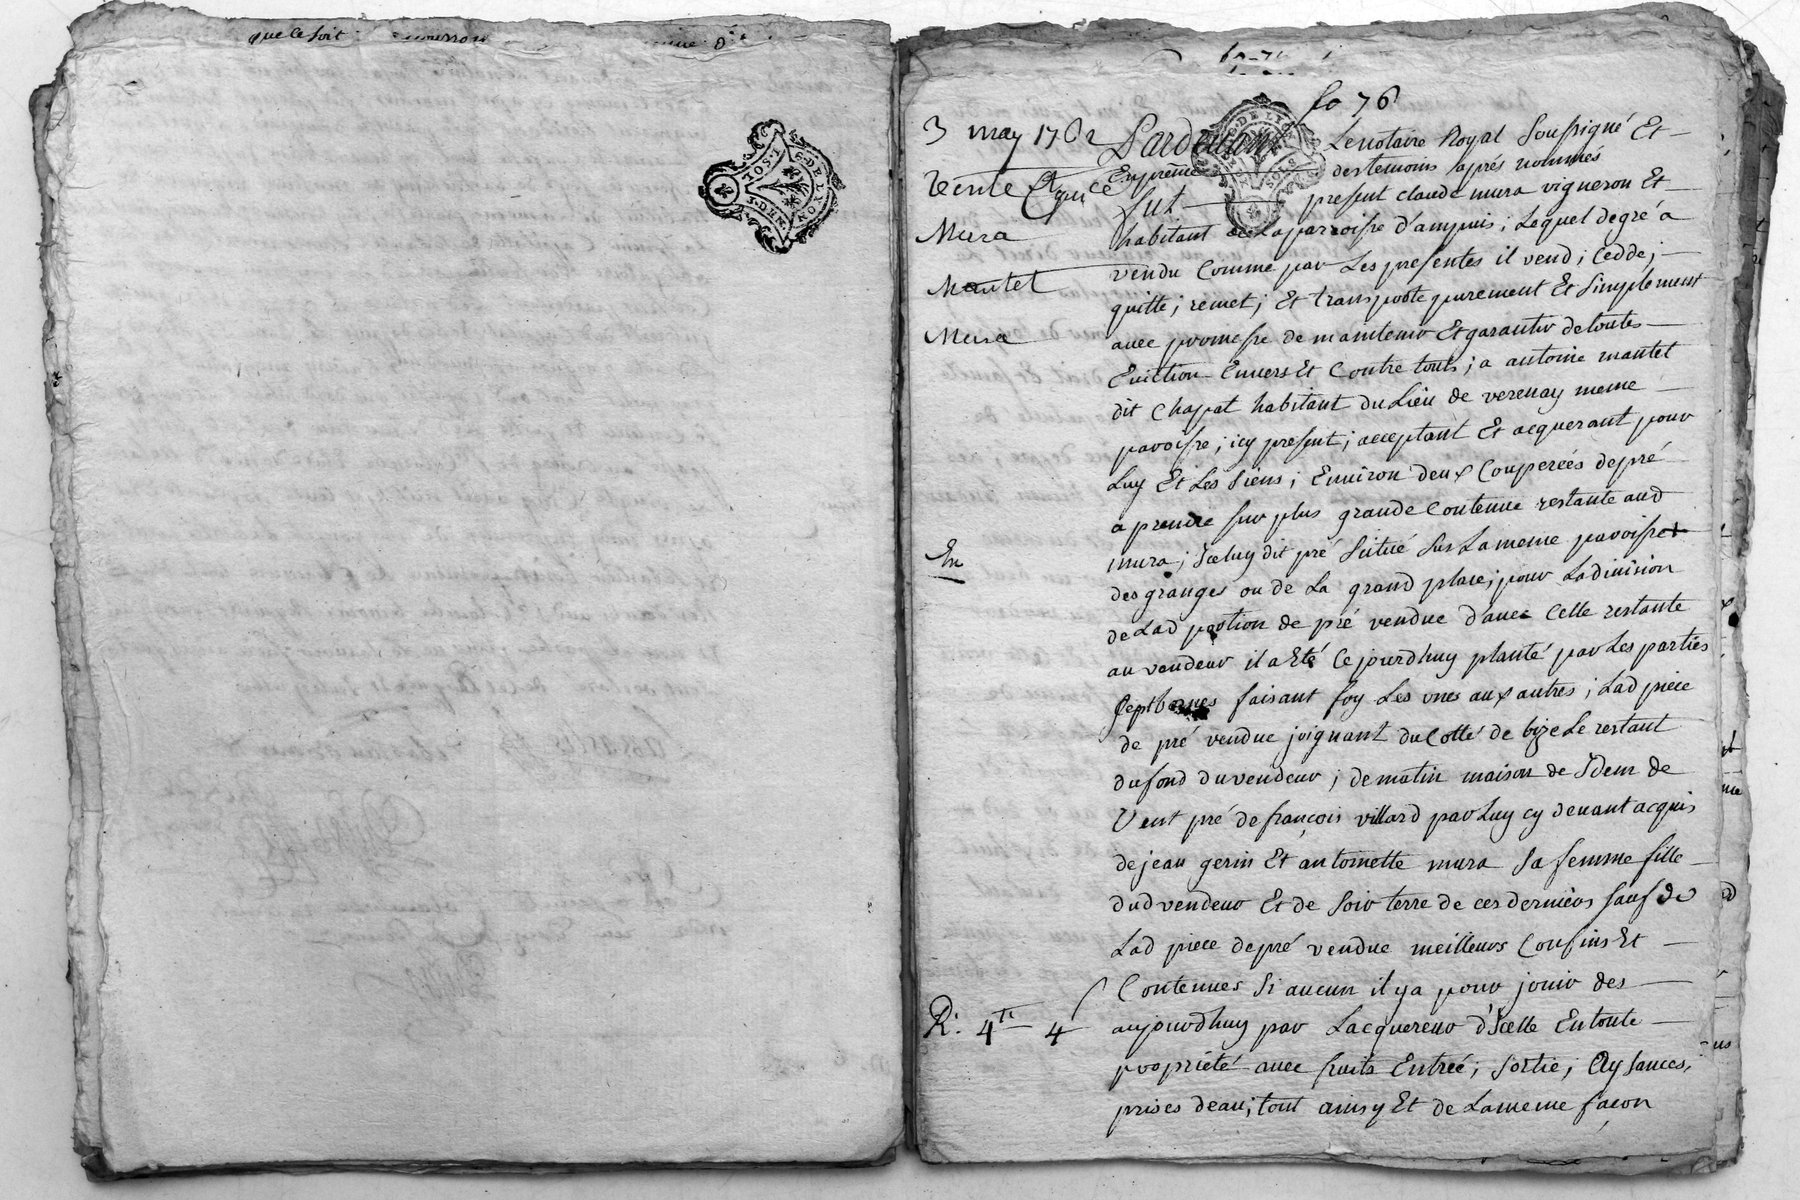 que ce soit
fo 76
3 may 1762
Pardevant Le notaire Royal Soussigné Et
des temoins aprés nommés
Vente
Fut present claude mura vigneron Et
Mura
habitant de La parroisse d'ampuis ; Lequel de gré a
vendu Comme par Les presentes il vend ; Cedde ;
Mantet
quitte ; remet ; Et transporte purement Et Simplement
Mura
avec promesse de maintenir Et garantir de toutes
Eviction Envers Et Contre touts ; a antoine mantet
dit Chapat habitant du Lieu de verenay meme
paroisse ; icy present ; acceptant Et acquerant pour
Luy Et Les Siens ; Environ deux Couperées de pré
a prendre sur plus grande Contenue restante aud
En
mura ; Iceluy dit pré Scitué Sur La meme paroisse
des granges ou de La grand place ; pour La division
de Lad portion de pré vendue d'avec Celle restante
au vendeur il a Eté Cejourdhuy planté par Les parties
Sept bornes faisant foy Les unes aux autres ; Lad piece
de pré vendue joignant du Cotté de bize Le restant
du fond du vendeur ; de matin maison de Idem de
Vent pré de françois villard par Luy cy devant acquis
de jean gerin Et antoinette mura Sa femme fille
dud vendeur Et de Soir terre de ces derniers Sauf de
Lad piece de pré vendue meilleurs Confins Et
Contenues Si aucun il y a pour jouir des
R. 4 tt 4
aujourdhuy par Lacquereur d'Icelle En toute
propriété avec fruits Entrée ; Sortie ; Aysances ;
prises deau ; tout ainsy Et de La meme façon